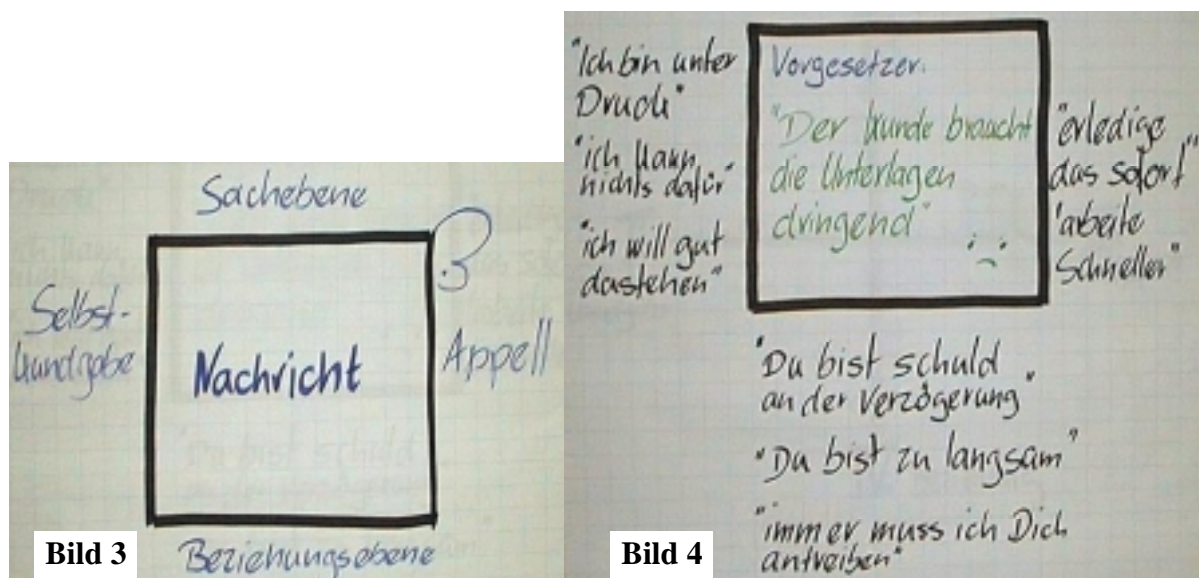 Sachebene
Selbst-
kundgabe
Nachricht
Appell
Beziehungsebene
Bild 3
"Ich bin unter
Druck"
"ich kann
nichts dafür"
"ich will gut
dastehen"
Vorgesetzer:
"Der Kunde braucht
die Unterlagen
dringend"
"erledige
das sofort"
"arbeite
Schneller"
"Du bist schuld
an der Verzögerung"
"Du bist zu langsam"
"immer muss ich Dich
antreiben"
Bild 4